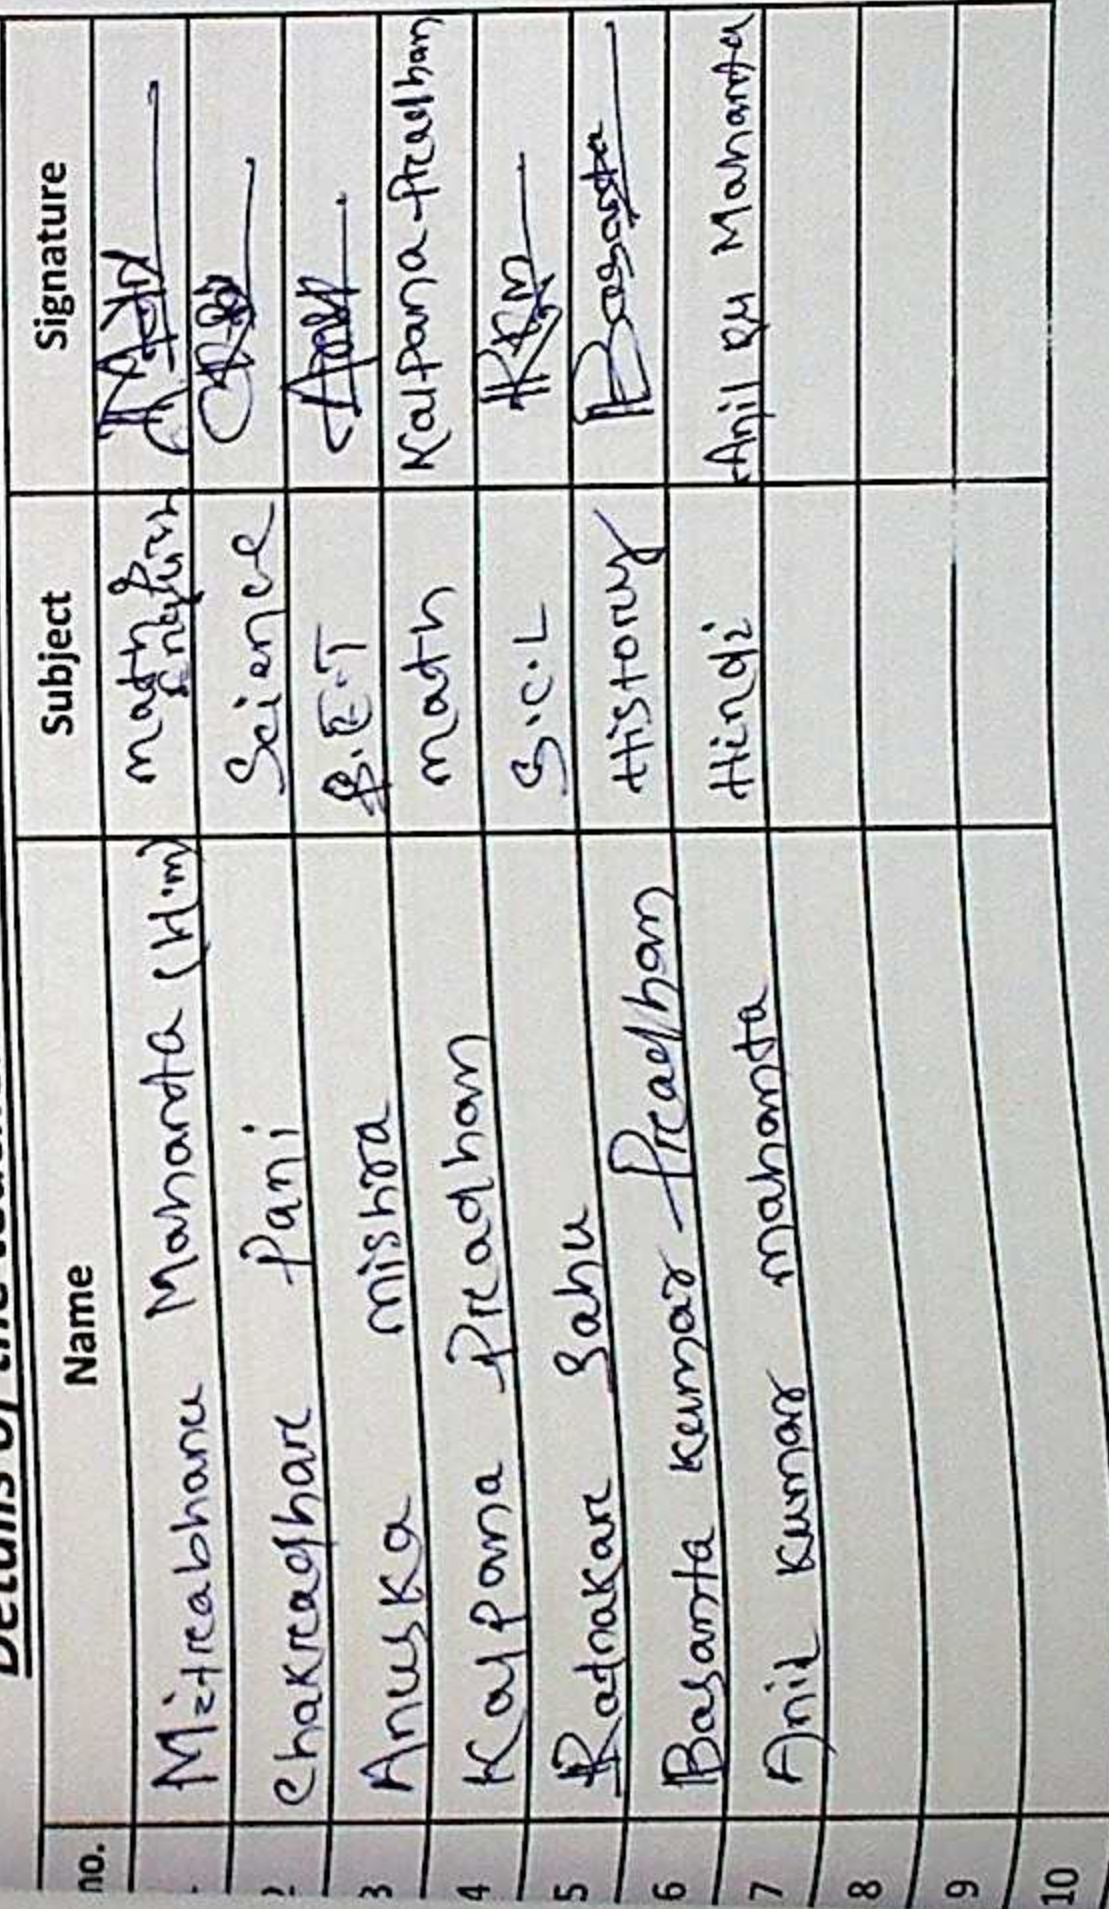 Details of the
no. Name Subject Signature
Mitrabhanu Mahanta (H.m) math &
2 Chakradhar Pani Science
3 Anuska mishra S.E.T
4 Kalpana Pradhan math Kalpana Pradhan
5 Ratnakar Sahu S.C.L
6 Basanta Kumar Pradhan History Basanta
7 Anil Kumar mahanta Hindi Anil Ku Mahanta
8
9
10